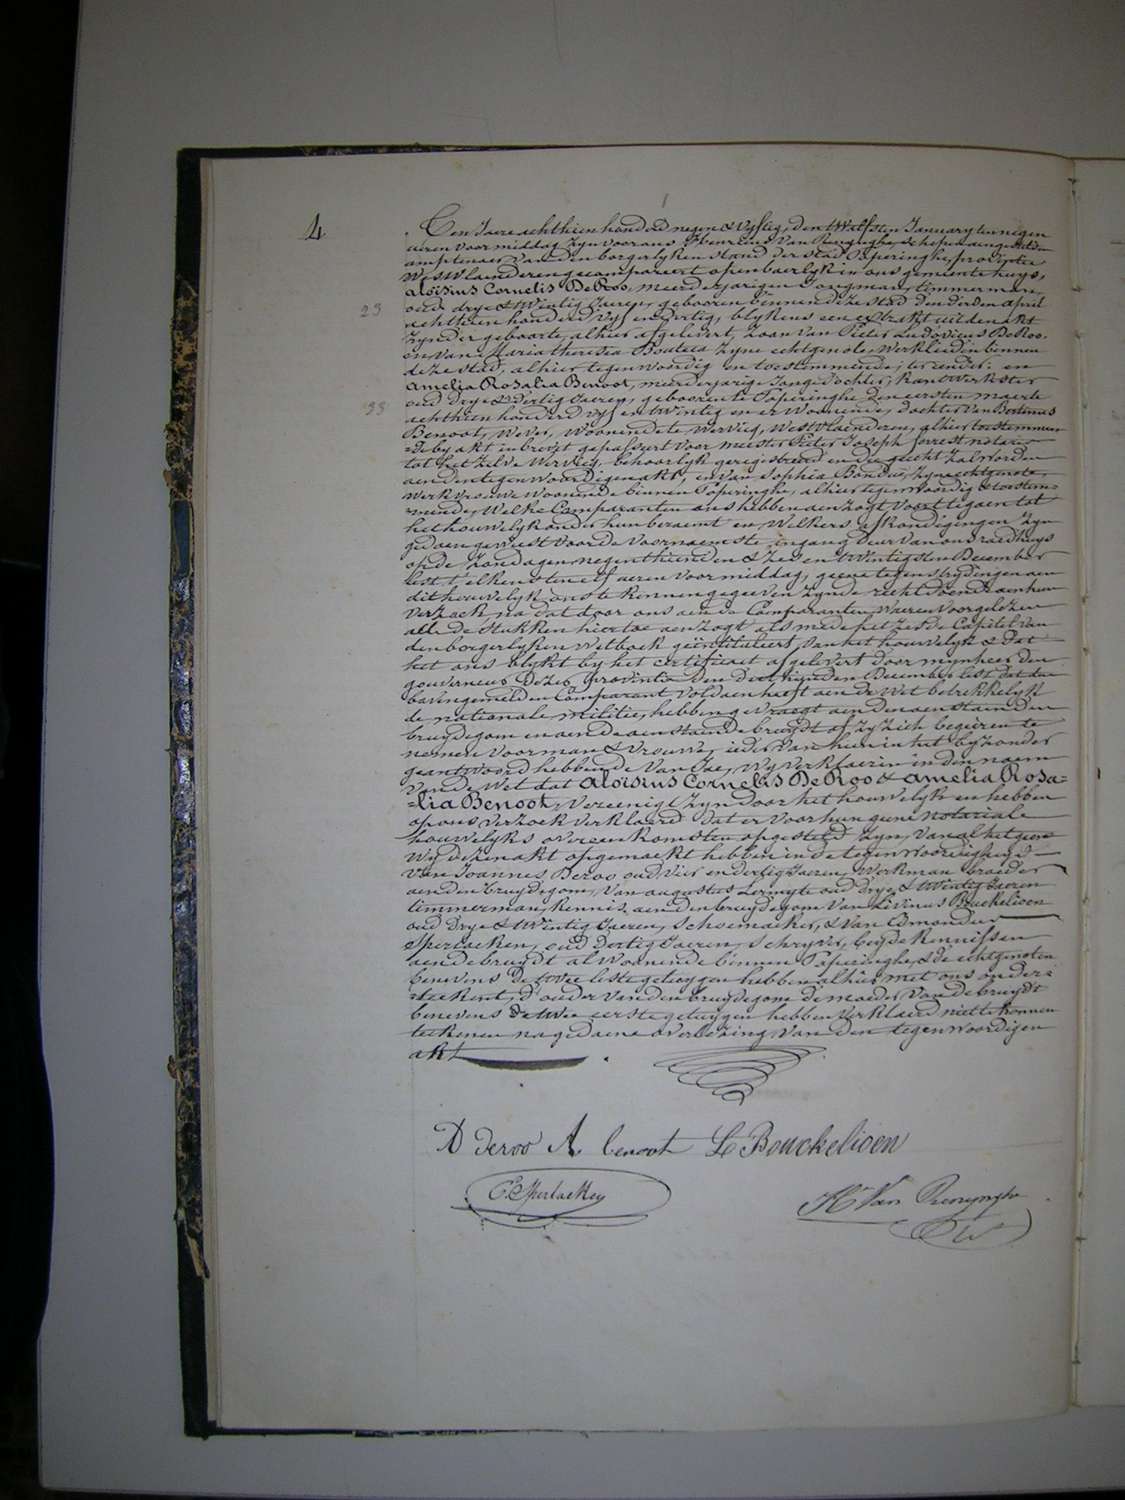 4
Ten Jaere achthien honderd negen & Vyftig, den twelfsten January ten negen
ueren voormiddag zyn voor ons Henricus Van Renynghe, schepen aengestelden
amptenaer van den borgerlyken stand der stad Poperinghe, provintie
WestVlaenderen gecompareert openbaerlyk in ons gemeentehuys,
Aloisius Cornelis DeRoo, meerderjarigen Jongman, timmerman,
23
oud drye & twintig Jaeren, gebooren binnen deze stad den derden april
achthien honderd vyf en dertig, blykens een extrakt uit den akt
zynder geboorte, alhier afgelevert, zoon van Pieter Ludovicus DeRoo,
en van Maria Theresia Bouteca zyne echtgenote, werklieden binnen
deze stad, alhier tegenwoordig en toestemmende, ter eender: en
Amelia Rosalia Benoot, meerderjarige Jonge dochter, kantwerkster
33
oud drye & dertig Jaeren, geboorente Poperinghe den eersten maerte
achthien honderd vyf en twintig en er woonende, dochter van Bertinus
Benoot, wever, woonende te Wervicq, WestVlaenderen, alhier toestemmen-
=de by akt in brevet gepasseert voor meester Pieter Joseph forrest notaris
tot het zelve Wervicq, behoorlyk geregistreerd en die gehecht zal worden
aen den tegenwoordigen akt, en van Sophia Bondue, zyne echtgenote,
werkvrouwe woonende binnen Poperinghe, alhier tegenwoordig & toestem=
mende, Welke Comparanten ons hebben aenzogt voort te gaen tot
het houwelyk onder hun beraemt en welkers afkondigingen zyn
gedaen geweest voor de voornaemste ingang deur van ons raedhuys
op de zondagen negenthienden & zes en twintigsten December
lest t' elkens ten elf ueren voormiddag, geene tegenstrydingen aen
dit houwelyk ons te kennen gegeeven zynde recht doende aen hun
verzoek, na dat door ons aen de Comparanten waeren voorgelezen
alle de stukken hier toe aenzogt als mede het zesde Capitel van
den borgerlyken Wetboek geïntituleert, Van het houwelyk & Dat
het ons blykt by het certificaet afgelevert door mynheer den
gouverneur dezer provintie den derthienden December lest dat den
bavengemelden Comparant voldaen heeft aen de Wet betrekkelyk
de nationale militie, hebben gevraegt aen den aenstaenden
bruydegom en aen de aenstaende bruydt of zy zich begeeren te
nemen voor man & vrouwe, ieder van hun in het byzonder
geantwoord hebbende van Jae, Wy verklaeren in den naem
van de Wet dat Aloisius Cornelis DeRoo & Amelia Rosa=
=lia Benoot, vereenigt zyn door het houwelyk en hebben
op ons verzoek verklaerd dat er voor hun geene notariale
houwelyks overeenkomsten opgesteld zyn, Van al het gene
Wy dezen akt opgemaekt hebben in de tegenwoordigheyd
van Joannes Deroo oud vier en dertig Jaeren, werkman broeder
aen den bruydegom, van augustus Lermyte oud drye & twintig Jaeren
timmerman, kennis aen den bruydegom van Livinus Bouckelioen
oud drye & twintig Jaeren, schoemaeker, & van Edmondus
Sperlaeken, oud dertig Jaeren, schryver, beyde kennissen
aen de bruydt al woonende binnen Poperinghe, & de echtgenoten
benevens de twee leste getuygen hebben alhier met ons onder=
=teekent, d' ouders van den bruydegom de moeder van de bruydt
benevens de twee eerste getuygen hebben verklaerd niet te konnen
teekenen na gedaene overlezing van den tegenwoordigen
akt
D deroo A benoot L Bouckelioen
E. Sperlaeken
H. Van Renynghe